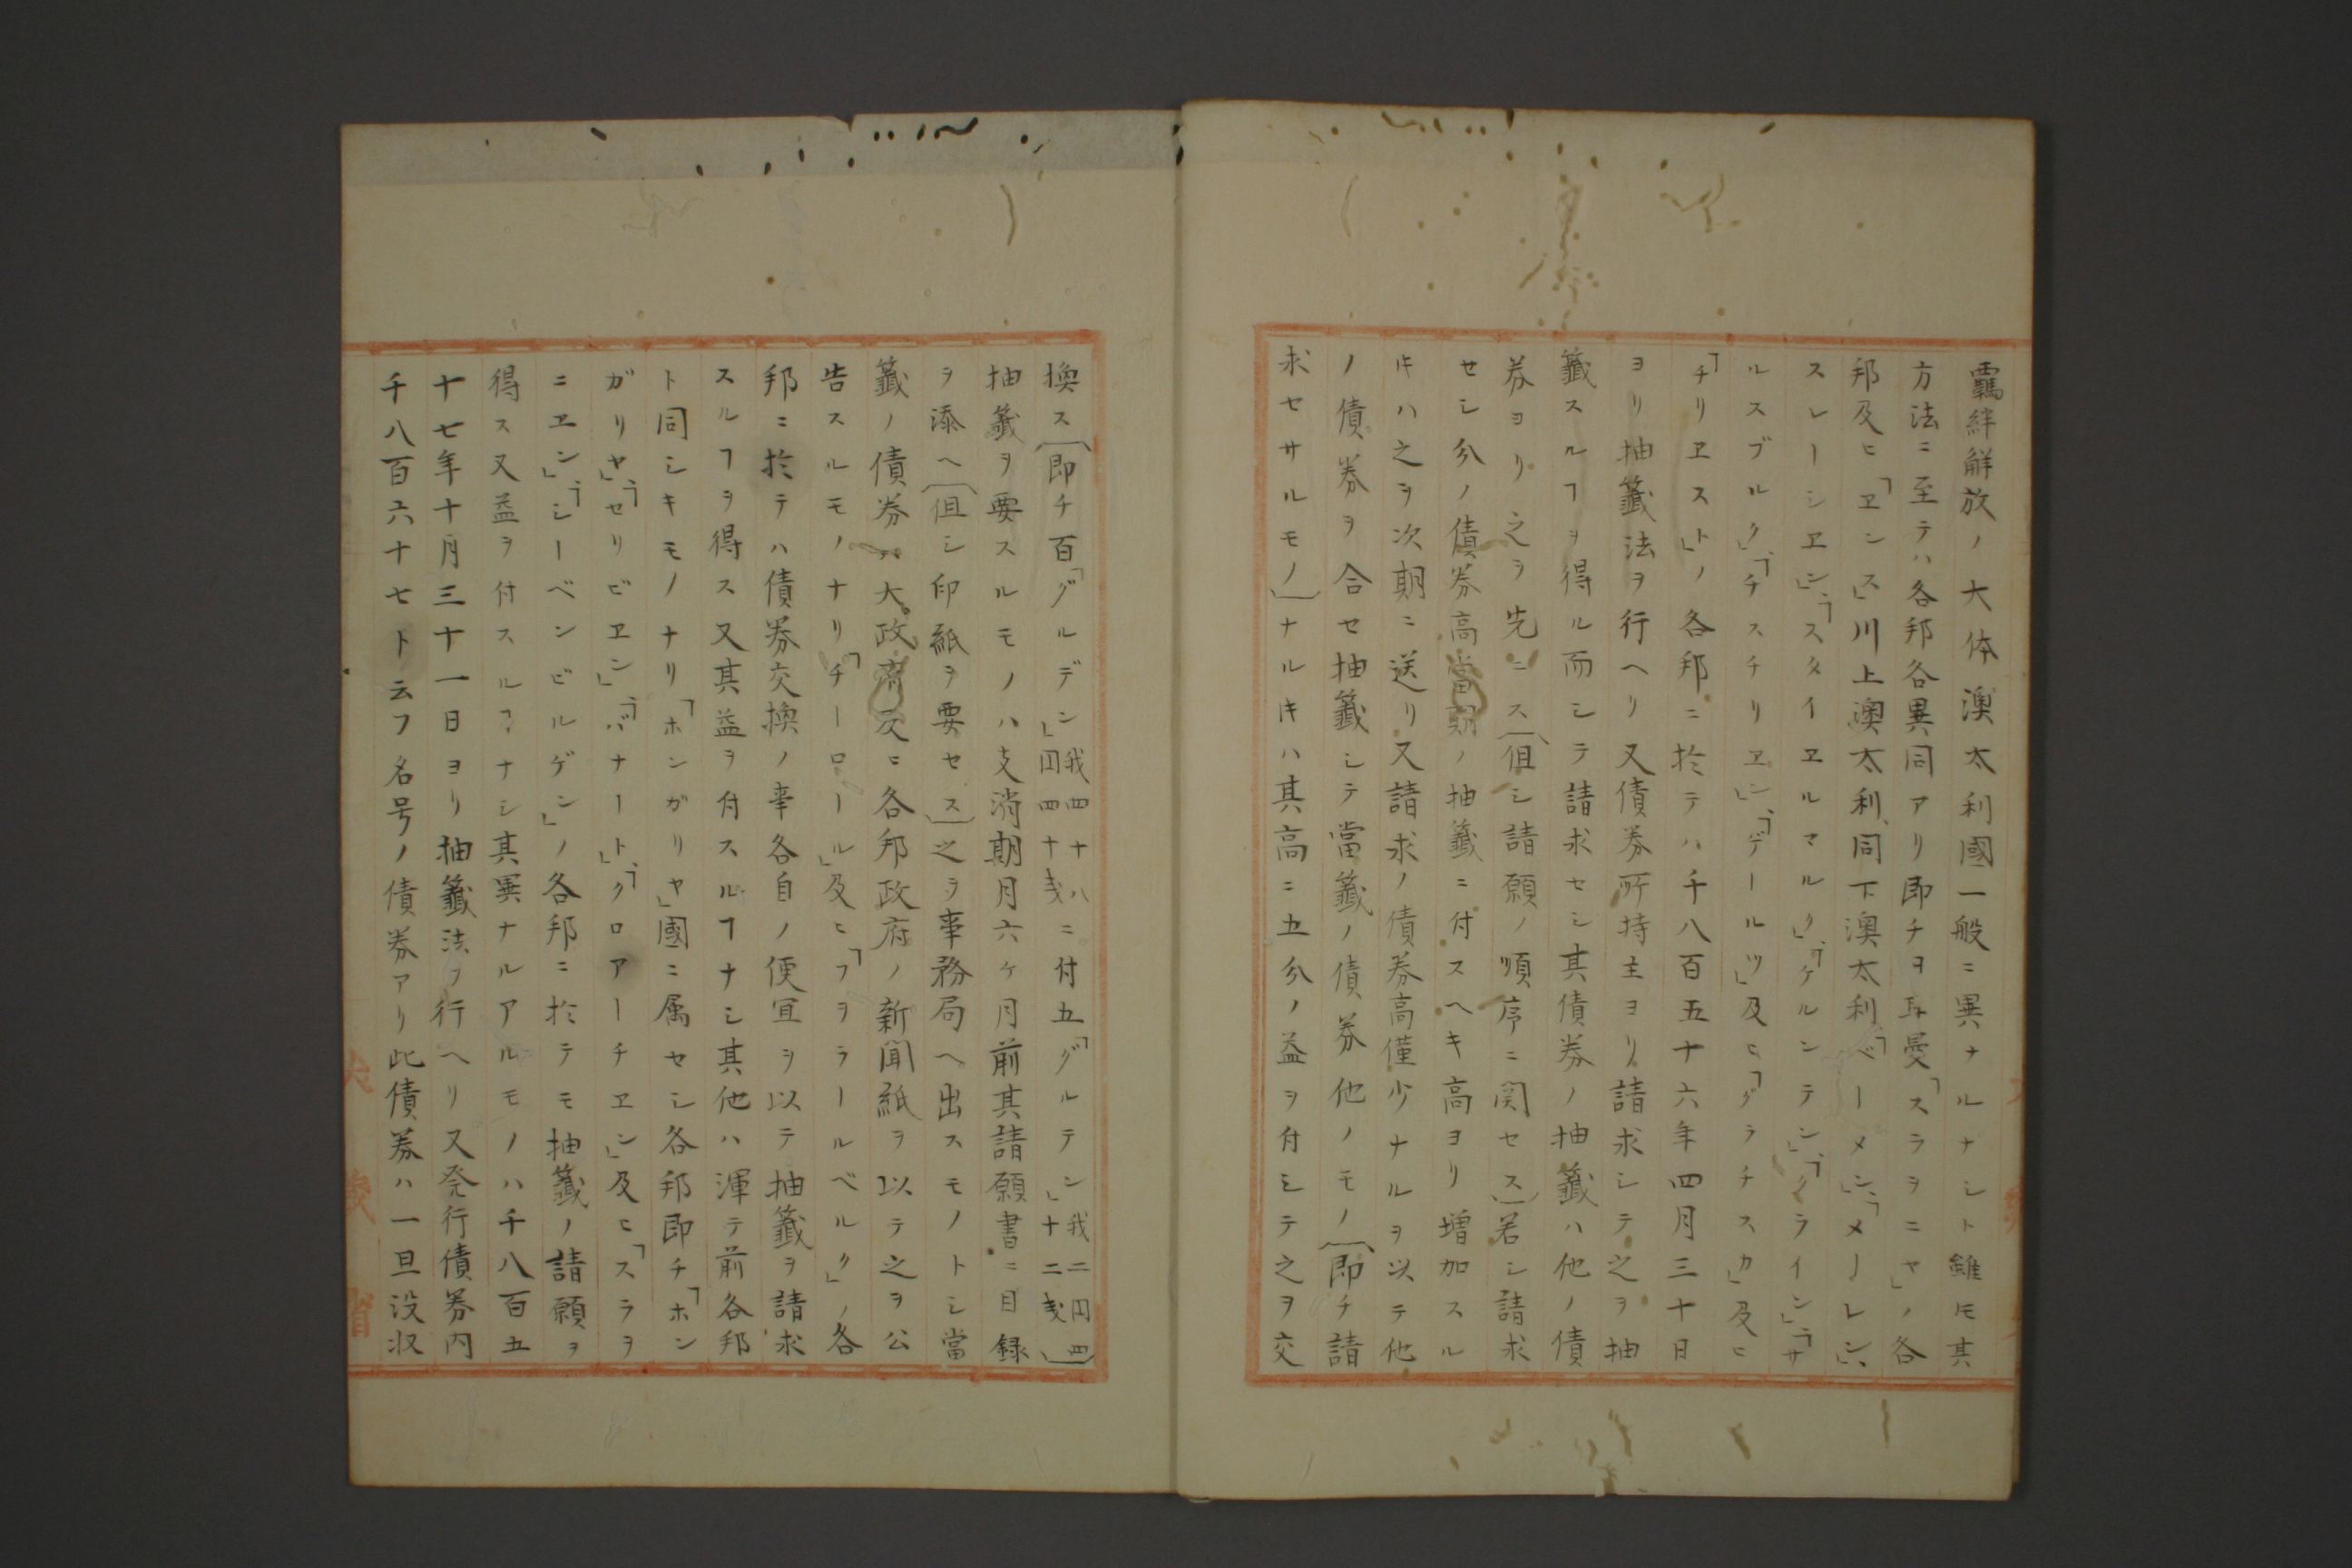 羈絆解放ノ大体澳太利國一般ニ異ナルナシト雖モ其
方法ニ至テハ各邦各異同アリ即チヲ耳曼「スラヲニヤ」ノ各
邦及ヒ「ヱンス」川上澳太利、同下澳太利「ベーメン」、「メーレン」、
スレーシヱン」、「スタイヱルマルク」、「ケルンテン」、「クライン」、「サ
ルスブルク」、「チスチリヱン」、「ゲールツ」及ヒ「グラチスカ」及ヒ
「チリヱスト」ノ各邦ニ於テハ千八百五十六年四月三十日
ヨリ抽籤法ヲ行ヘリ又債券所持主ヨリ請求シテ之ヲ抽
籤スルヿヲ得ル而シテ請求セシ其債券ノ抽籤ハ他ノ債
券ヨリ之ヲ先ニス(但シ請願ノ順序ニ関セス)若シ請求
セシ分ノ債券高當期ノ抽籤ニ付スヘキ高ヨリ増加スル
キハ之ヲ次期ニ送リ又請求ノ債券高僅少ナルヲ以テ他
ノ債券ヲ合セ抽籤シテ當籤ノ債券他ノモノ(即チ請
求セサルモノ)ナルキハ其高ニ五分ノ益ヲ付シテ之ヲ交
換ス(即チ百「グルデン」我四十八円四十戔ニ付五「グルテン」我二円四十二戔)
抽籤ヲ要スルモノハ支消期月六ヶ月前其請願書ニ目録
ヲ添ヘ(但シ印紙ヲ要セス)之ヲ事務局ヘ出スモノトシ當
籤ノ債券ハ大政府及ヒ各邦政府ノ新聞紙ヲ以テ之ヲ公
告スルモノナリ「チーロール」及ヒ「フヲラールベルク」ノ各
邦ニ於テハ債券交換ノ事各自ノ便宜ヲ以テ抽籤ヲ請求
スルヿヲ得ス又其益ヲ付スルヿナシ其他ハ渾テ前各邦
ト同シキモノナリ「ホンガリヤ」國ニ属セシ各邦即チ「ホン
ガリヤ」「セリビヱン」「バナート」「クロアーチヱン」及ヒ「スラヲ
ニヱン」「シーベンビルゲン」ノ各邦ニ於テモ抽籤ノ請願ヲ
得ス又益ヲ付スルヿナシ其異ナルアルモノハ千八百五
十七年十月三十一日ヨリ抽籤法ヲ行ヘリ又発行債券内
千八百六十七ト云フ名号ノ債券アリ此債券ハ一旦没収